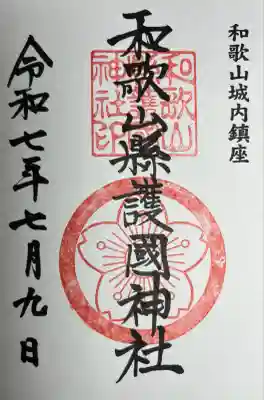 和歌山城内鎮座
和歌山縣護國神社
和歌山
縣護國
神社印
令和七年七月九日